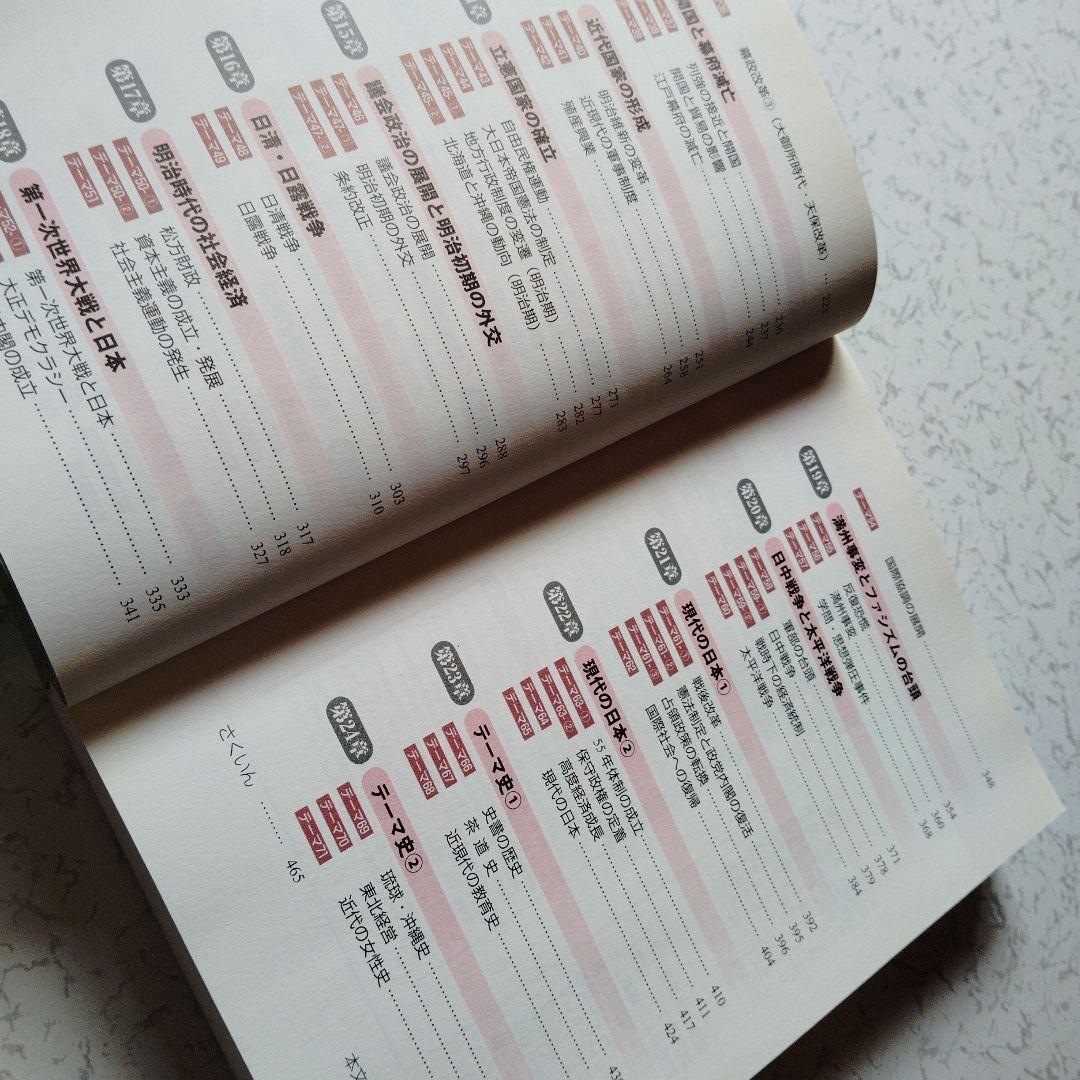 幕政改革③(大御所時代・天保改革) 223
開国と幕府滅亡
列強の接近と開国 230
開国と貿易の影響 237
江戸幕府の滅亡 244
近代国家の形成
テーマ40 明治維新の変革 251
テーマ41 近現代の軍事制度 258
テーマ42 殖産興業 264
立憲国家の確立
テーマ43 自由民権運動 271
テーマ44 大日本帝国憲法の制定 277
テーマ45-① 地方行政制度の変遷(明治期) 282
テーマ45-② 北海道と沖縄の動向(明治期) 283
第15章 議会政治の展開と明治初期の外交
テーマ46 議会政治の展開 288
テーマ47-① 明治初期の外交 296
テーマ47-② 条約改正 297
第16章 日清・日露戦争
テーマ48 日清戦争 303
テーマ49 日露戦争 310
第17章 明治時代の社会経済
テーマ50-① 松方財政 317
テーマ50-② 資本主義の成立・発展 318
テーマ51 社会主義運動の発生 327
第18章 第一次世界大戦と日本
テーマ52-① 第一次世界大戦と日本 333
大正デモクラシー 335
内閣の成立 341
テーマ54 国際協調の展開 348
第19章 満州事変とファシズムの台頭
テーマ55 反復恐慌 354
テーマ56 満州事変 360
テーマ57 学問・思想弾圧事件 368
第20章 日中戦争と太平洋戦争
テーマ58 軍部の台頭 371
テーマ59-① 日中戦争 378
テーマ59-② 戦時下の経済統制 379
テーマ60 太平洋戦争 384
第21章 現代の日本①
テーマ61-① 戦後改革 392
テーマ61-② 憲法制定と政党内閣の復活 395
テーマ61-③ 占領政策の転換 396
テーマ62 国際社会への復帰 404
第22章 現代の日本②
テーマ63-① 55年体制の成立 410
テーマ63-② 保守政権の定着 411
テーマ64 高度経済成長 417
テーマ65 現代の日本 424
第23章 テーマ史①
テーマ66 史書の歴史
テーマ67 茶道史
テーマ68 近現代の教育史
第24章 テーマ史②
テーマ69 琉球・沖縄史
テーマ70 東北経営
テーマ71 近代の女性史
さくいん 465
本文